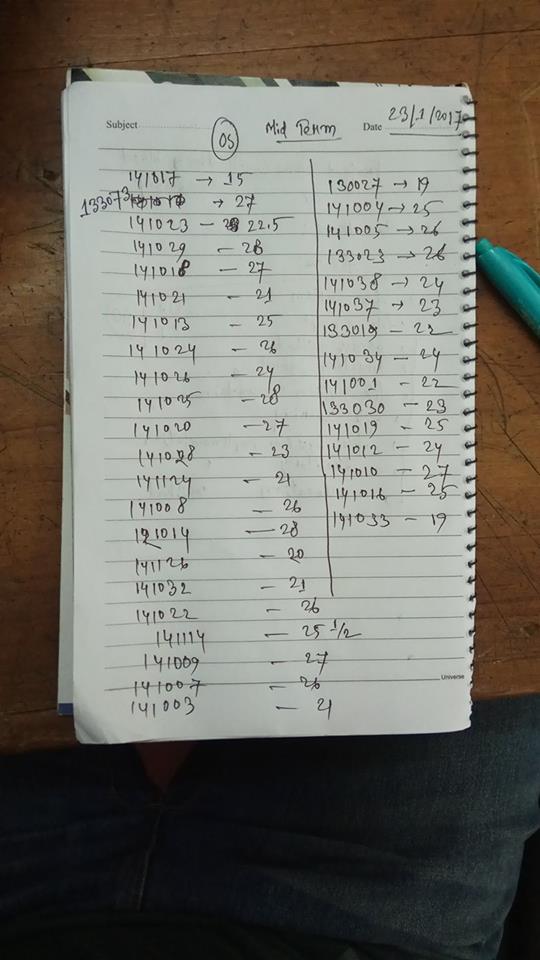 Subject
OS
Mid Term
Date 23/1/2017
141017 → 15
133073 → 27
141023 - 22.5
141029 - 28
141018 - 27
141021 - 21
141013 - 25
141024 - 26
141026 - 24
141025 - 28
141020 - 27
141028 - 23
141124 - 21
141008 - 26
121014 - 28
141126 - 20
141032 - 21
141022 - 26
141114 - 25 1/2
141009 - 27
141007 - 26
141003 - 21
130027 → 19
141004 → 25
141005 → 26
133023 → 26
141038 → 24
141037 → 23
133019 - 22
141034 - 24
141001 - 22
133030 - 23
141019 - 25
141012 - 24
141010 - 27
141016 - 25
141033 - 19
Universe